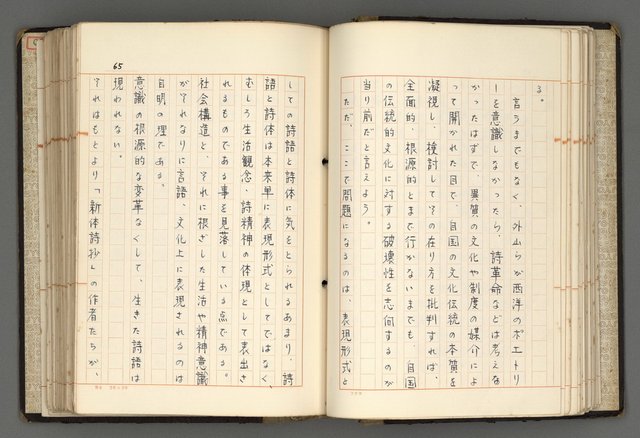 る。
言うまでもなく、外山らが西洋のポエトリ
ーを意識しなかったら、詩革命などは考えな
かったはずで、異質の文化や制度の媒介によ
って開かれた目で、自国の文化伝統の本質を
凝視し、検討してその在り方を批判すれば、
全面的、根源的とまで行かないまでも、自国
の伝統的文化に対する破壊性を志向するのが
当り前だと言えよう。
ただ、ここで問題になるのは、表現形式と
65
しての詩語と詩体に気をとられるあまり、詩
語と詩体は本来単に表現形式としてではなく、
むしろ生活観念・詩精神の体現として表出さ
れるものである事を見落している点である。
社会構造と、それに根ざした生活や精神意識
がそれなりに言語、文化上に表現されるのは
自明の理である。
意識の根源的な変革なくして、生きた詩語は
現われない。
それはもとより「新体詩抄」の作者たちが、